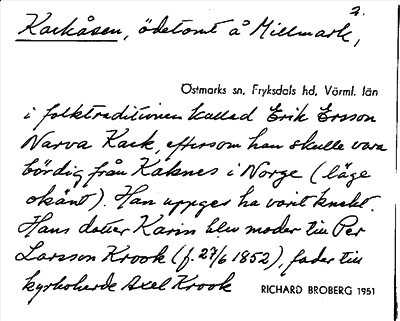 2.
Karkåsen, ödetomt å Millmark,
Östmarks sn, Fryksdals hd, Värml. län
i folktraditionen kallad Erik Ersson
Narva Kark, eftersom han skulle vara
bördig från Kaknes i Norge (läge
okänt). Han uppges ha varit knekt.
Hans dotter Karin blev moder till Per
Larsson Krook (f. 27/6 1852), fader till
kyrkoherde Axel Krook
RICHARD BROBERG 1951